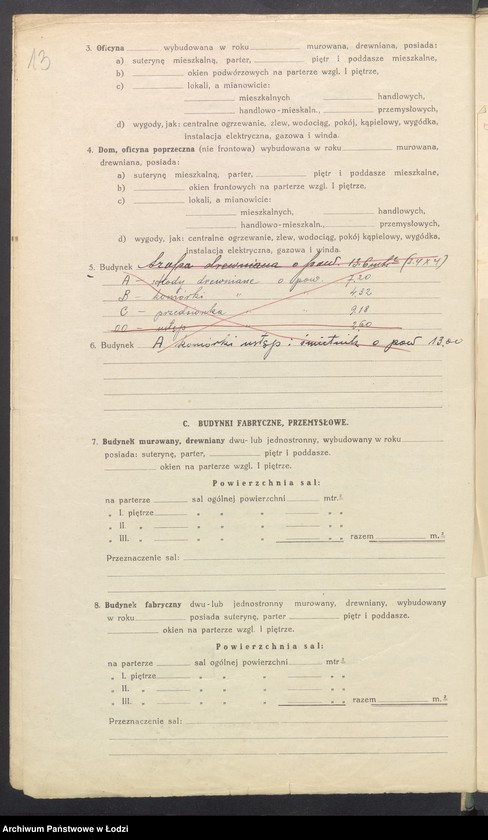 13
3. Oficyna ______ wybudowana w roku ______ murowana, drewniana, posiada:
a) suterynę mieszkalną, parter, ______ piętr i poddasze mieszkalne,
b) ______ okien podwórzowych na parterze wzgl. I piętrze,
c) ______ lokali, a mianowicie:
______ mieszkalnych ______ handlowych,
______ handlowo-mieskaln., ______ przemysłowych,
d) wygody, jak: centralne ogrzewanie, zlew, wodociąg, pokój, kąpielowy, wygódka,
instalacja elektryczna, gazowa i winda.
4. Dom, oficyna poprzeczna (nie frontowa) wybudowana w roku ______ murowana,
drewniana, posiada:
a) suterynę mieszkalną, parter, ______ piętr i poddasze mieszkalne,
b) ______ okien frontowych na parterze wzgl. I piętrze,
c) ______ lokali, a mianowicie:
______ mieszkalnych, ______ handlowych,
______ handlowo-mieszkaln., ______ przemysłowych,
d) wygody, jak: centralne ogrzewanie, zlew, wodociąg, pokój kąpielowy, wygódka,
instalacja elektryczna, gazowa i winda.
5. Budynek drewniana o pow. (3.4 x 4)
A – drewniane o pow. 7,20
B – komórki " 4,32
C – " 9,18
– ustęp 2,60
6. Budynek A komórki ustęp i śmietnik o pow 13,00
C. BUDYNKI FABRYCZNE, PRZEMYSŁOWE.
7. Budynek murowany, drewniany dwu- lub jednostronny, wybudowany w roku ______
posiada: suterynę, parter, ______ piętr i poddasze.
______ okien na parterze wzgl. I piętrze.
Powierzchnia sal:
na parterze ______ sal ogólnej powierzchni ______ mtr².
„ I. piętrze ______ „ „ „ ______ „ „
„ II. „ ______ „ „ „ ______ „ „
„ III. „ ______ „ „ „ ______ „ „ razem ______ m.²
Przeznaczenie sal: ______
8. Budynek fabryczny dwu-lub jednostronny murowany, drewniany, wybudowany
w roku ______ posiada suterynę, parter ______ piętr i poddasze.
______ okien na parterze wzgl. I piętrze.
Powierzchnia sal:
na parterze ______ sal ogólnej powierzchni ______ mtr².
„ I. piętrze ______ „ „ „ ______ „ „
„ II. „ ______ „ „ „ ______ „ „
„ III. „ ______ „ „ „ ______ „ „ razem ______ m.²
Przeznaczenie sal: ______
Archiwum Państwowe w Łodzi